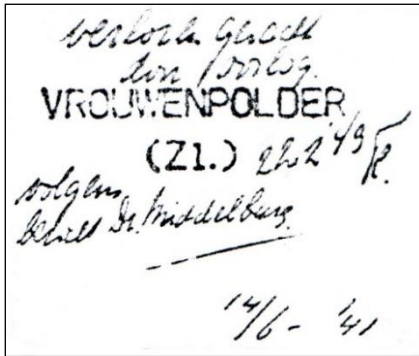 verloren geraakt
door oorlog.
VROUWENPOLDER
(Zl.)
volgens
bericht Dr. Middelburg.
14/6 - '41